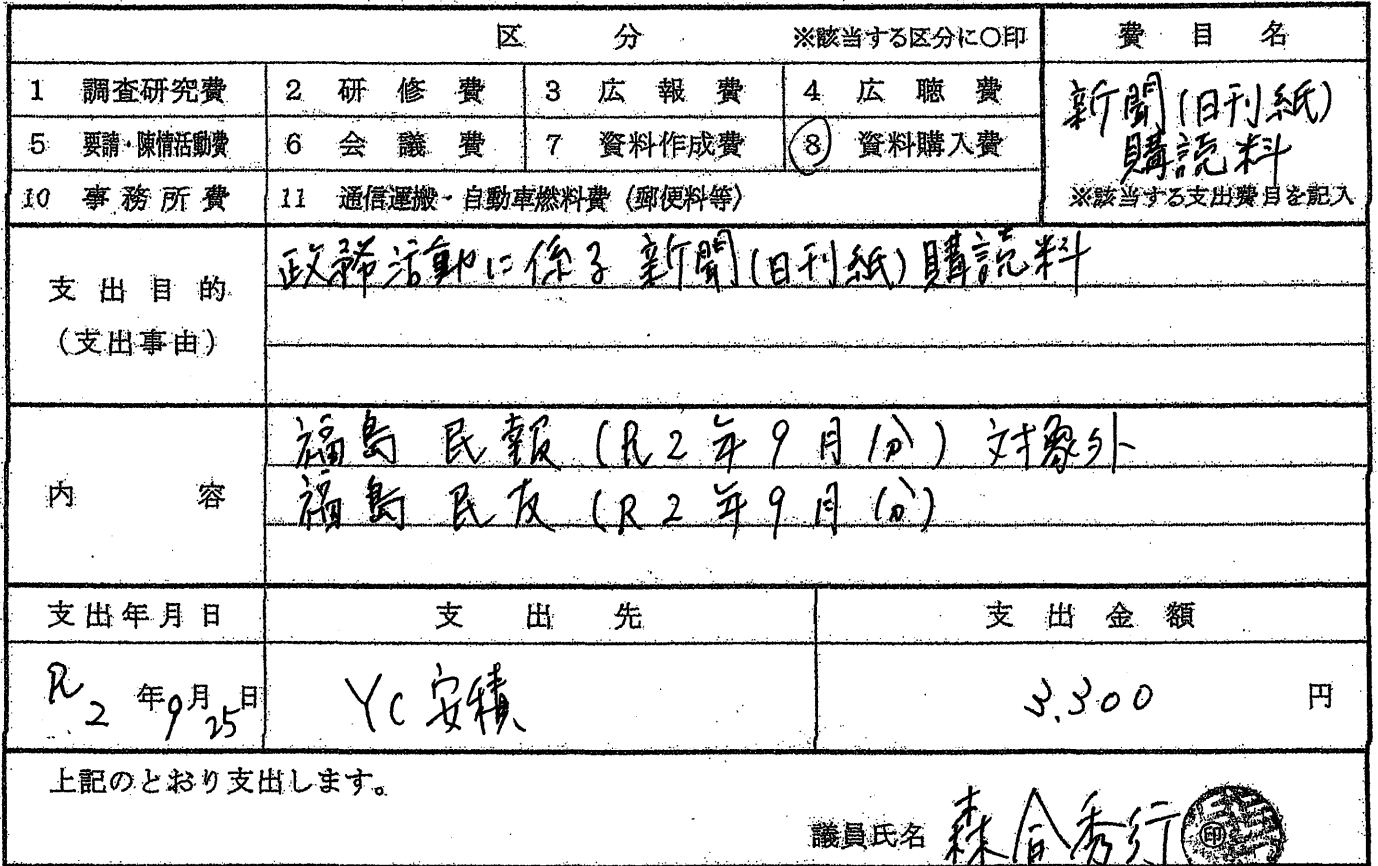 区 分 ※該当する区分に○印 費 目 名
1 調査研究費 2 研 修 費 3 広 報 費 4 広 聴 費
新聞(日刊紙)
5 要請・陳情活動費 6 会 議 費 7 資料作成費 8 資料購入費
購読料
10 事 務 所 費 11 通信運搬・自動車燃料費(郵便料等) ※該当する支出費目を記入
政務活動に係る新聞(日刊紙)購読料
支 出 目 的
(支出事由)
福島民報(R2年9月分)対象外
内 容
福島民友(R2年9月分)
支出年月日 支 出 先 支 出 金 額
R2年9月25日 YC安積 3,300 円
上記のとおり支出します。
議員氏名 森合秀行 印